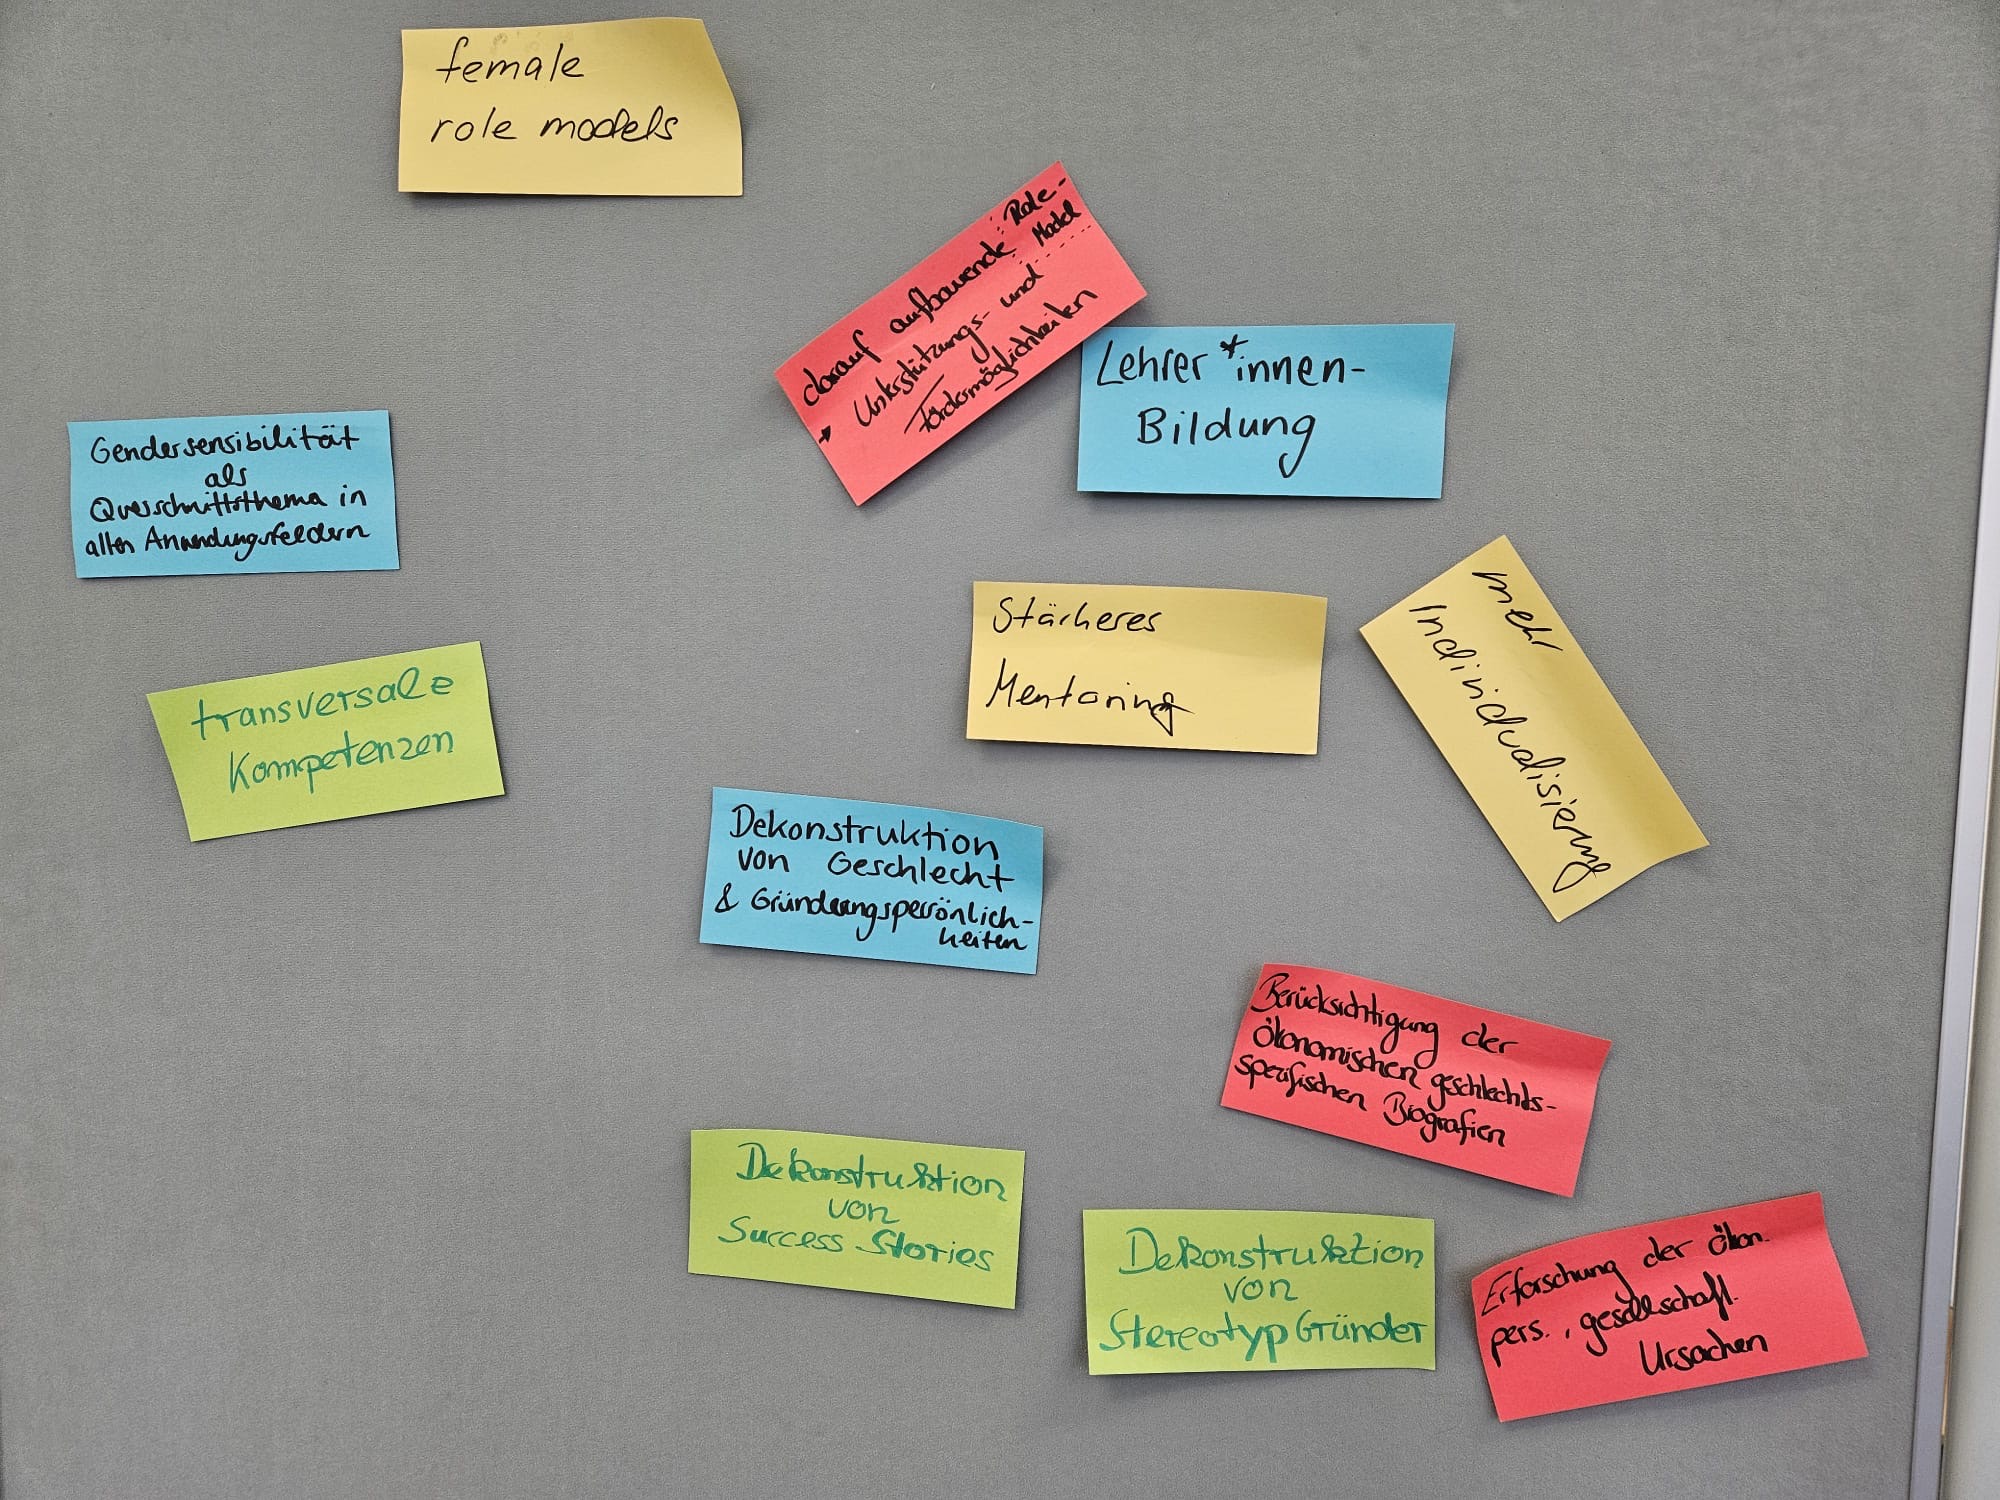 female
role models
darauf aufbauende Role-
Model
→ Unterstützungs- und
Fördermöglichkeiten
Lehrer*innen-
Bildung
Gendersensibilität
als
Querschnittsthema in
allen Anwendungsfeldern
Stärkeres
Mentoring
mehr
Individualisierung
transversale
Kompetenzen
Dekonstruktion
von Geschlecht
& Gründungspersönlich-
keiten
Berücksichtigung der
ökonomischen geschlechts-
spezifischen Biografien
Dekonstruktion
von
Success Stories
Dekonstruktion
von
Stereotyp Gründer
Erforschung der ökon.
pers., gesellschaftl.
Ursachen